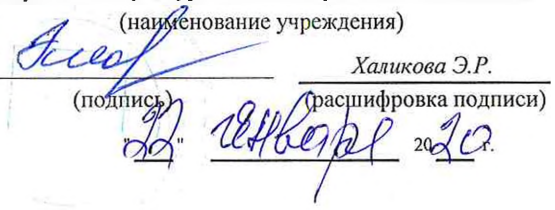 (наименование учреждения)
Халикова Э.Р.
(подпись) (расшифровка подписи)
"22" января 2020 г.